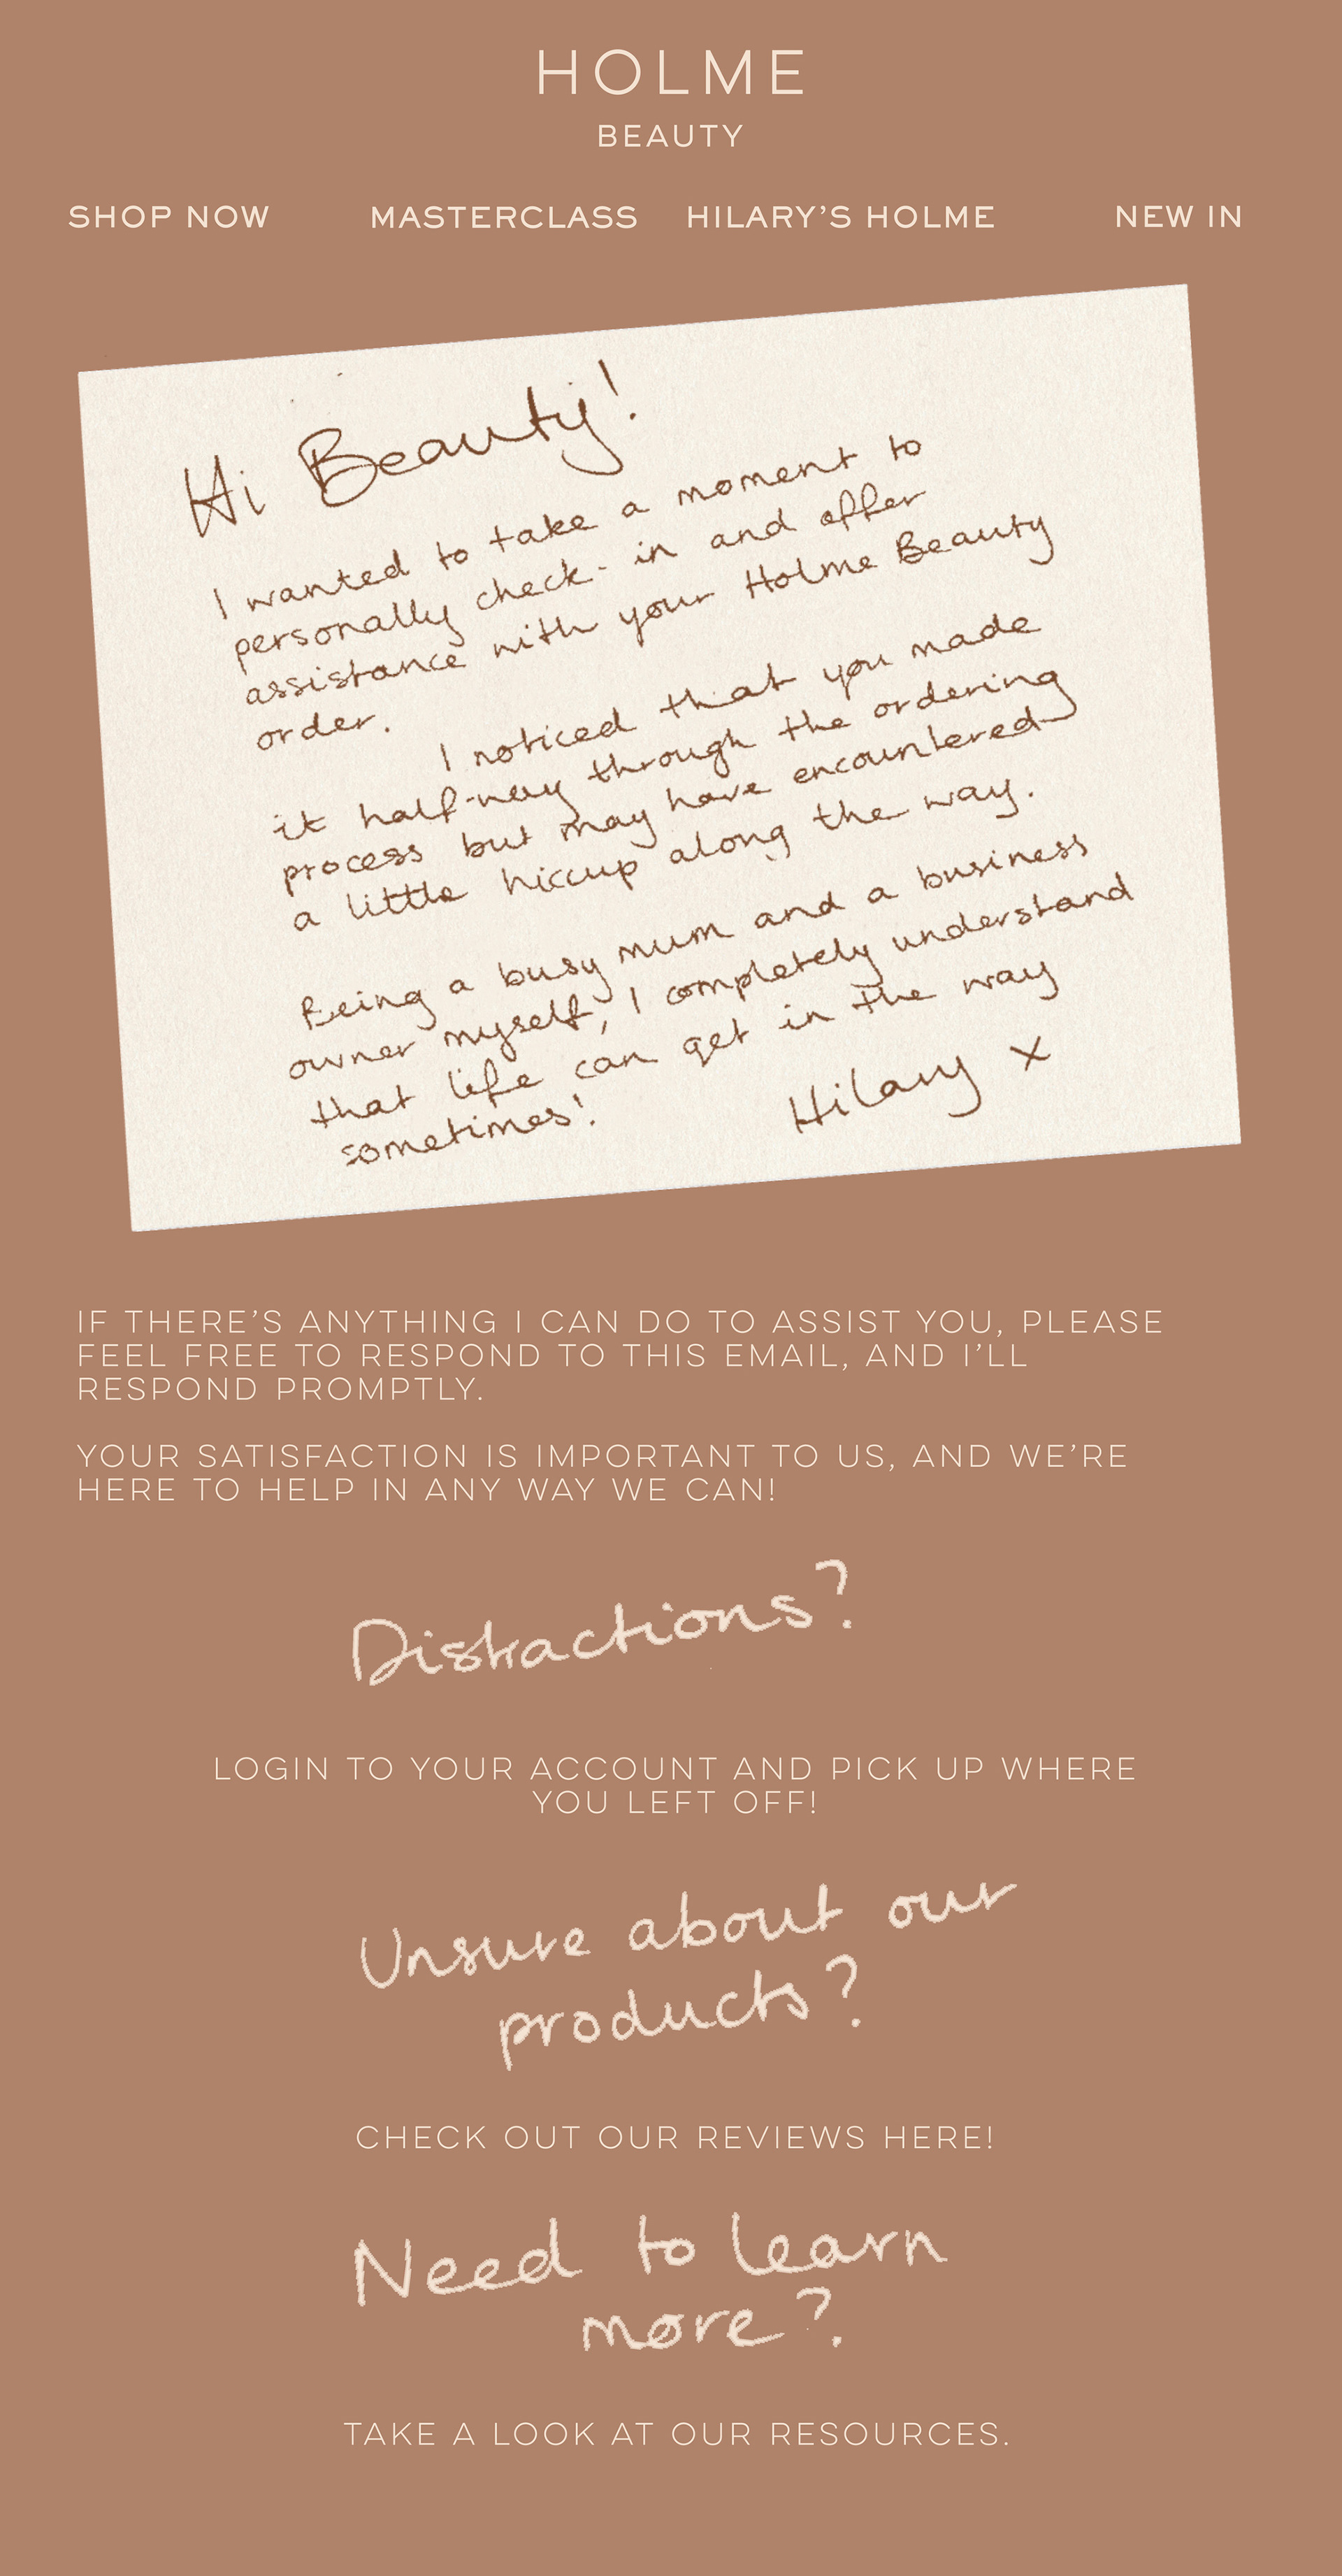 HOLME
BEAUTY
SHOP NOW MASTERCLASS HILARY'S HOLME NEW IN
Hi Beauty!
I wanted to take a moment to
personally check-in and offer
assistance with your Holme Beauty
order.
I noticed that you made
it half-way through the ordering
process but may have encountered
a little hiccup along the way.
Being a busy mum and a business
owner myself, I completely understand
that life can get in the way
sometimes!
Hilary x
IF THERE'S ANYTHING I CAN DO TO ASSIST YOU, PLEASE
FEEL FREE TO RESPOND TO THIS EMAIL, AND I'LL
RESPOND PROMPTLY.
YOUR SATISFACTION IS IMPORTANT TO US, AND WE'RE
HERE TO HELP IN ANY WAY WE CAN!
Distractions?
LOGIN TO YOUR ACCOUNT AND PICK UP WHERE
YOU LEFT OFF!
Unsure about our
products?
CHECK OUT OUR REVIEWS HERE!
Need to learn
more?
TAKE A LOOK AT OUR RESOURCES.